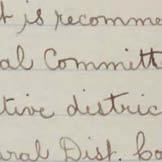 t is recomme
al Committ
tive distric
ural Dist. bo